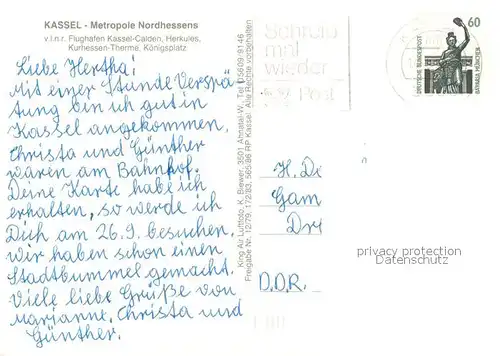 KASSEL - Metropole Nordhessens
v.l.n.r. Flughafen Kassel-Calden, Herkules,
Kurhessen-Therme, Königsplatz
Liebe Hertha!
Mit einer Stunde Verspä
tung bin ich gut in
Kassel angekommen.
Christa und Günther
waren am Bahnhof.
Deine Karte habe ich
erhalten, so werde ich
Dich am 26.9. besuchen.
Wir haben schon einen
Stadtbummel gemacht.
Viele liebe Grüße von
Marianne, Christa und
Günther.
King Air Luftfoto: K. Biewer, 3501 Ahnatal-W., Tel. 05609-9146
Freigabe Nr. 12/79, 172/83, 565-86 RP Kassel. Alle Rechte vorbehalten
Schreib
mal
wieder
Post
60
DEUTSCHE BUNDESPOST
BAVARIA MÜNCHEN
H. Di
Gam
Dri
D.D.R.
privacy protection
Datenschutz